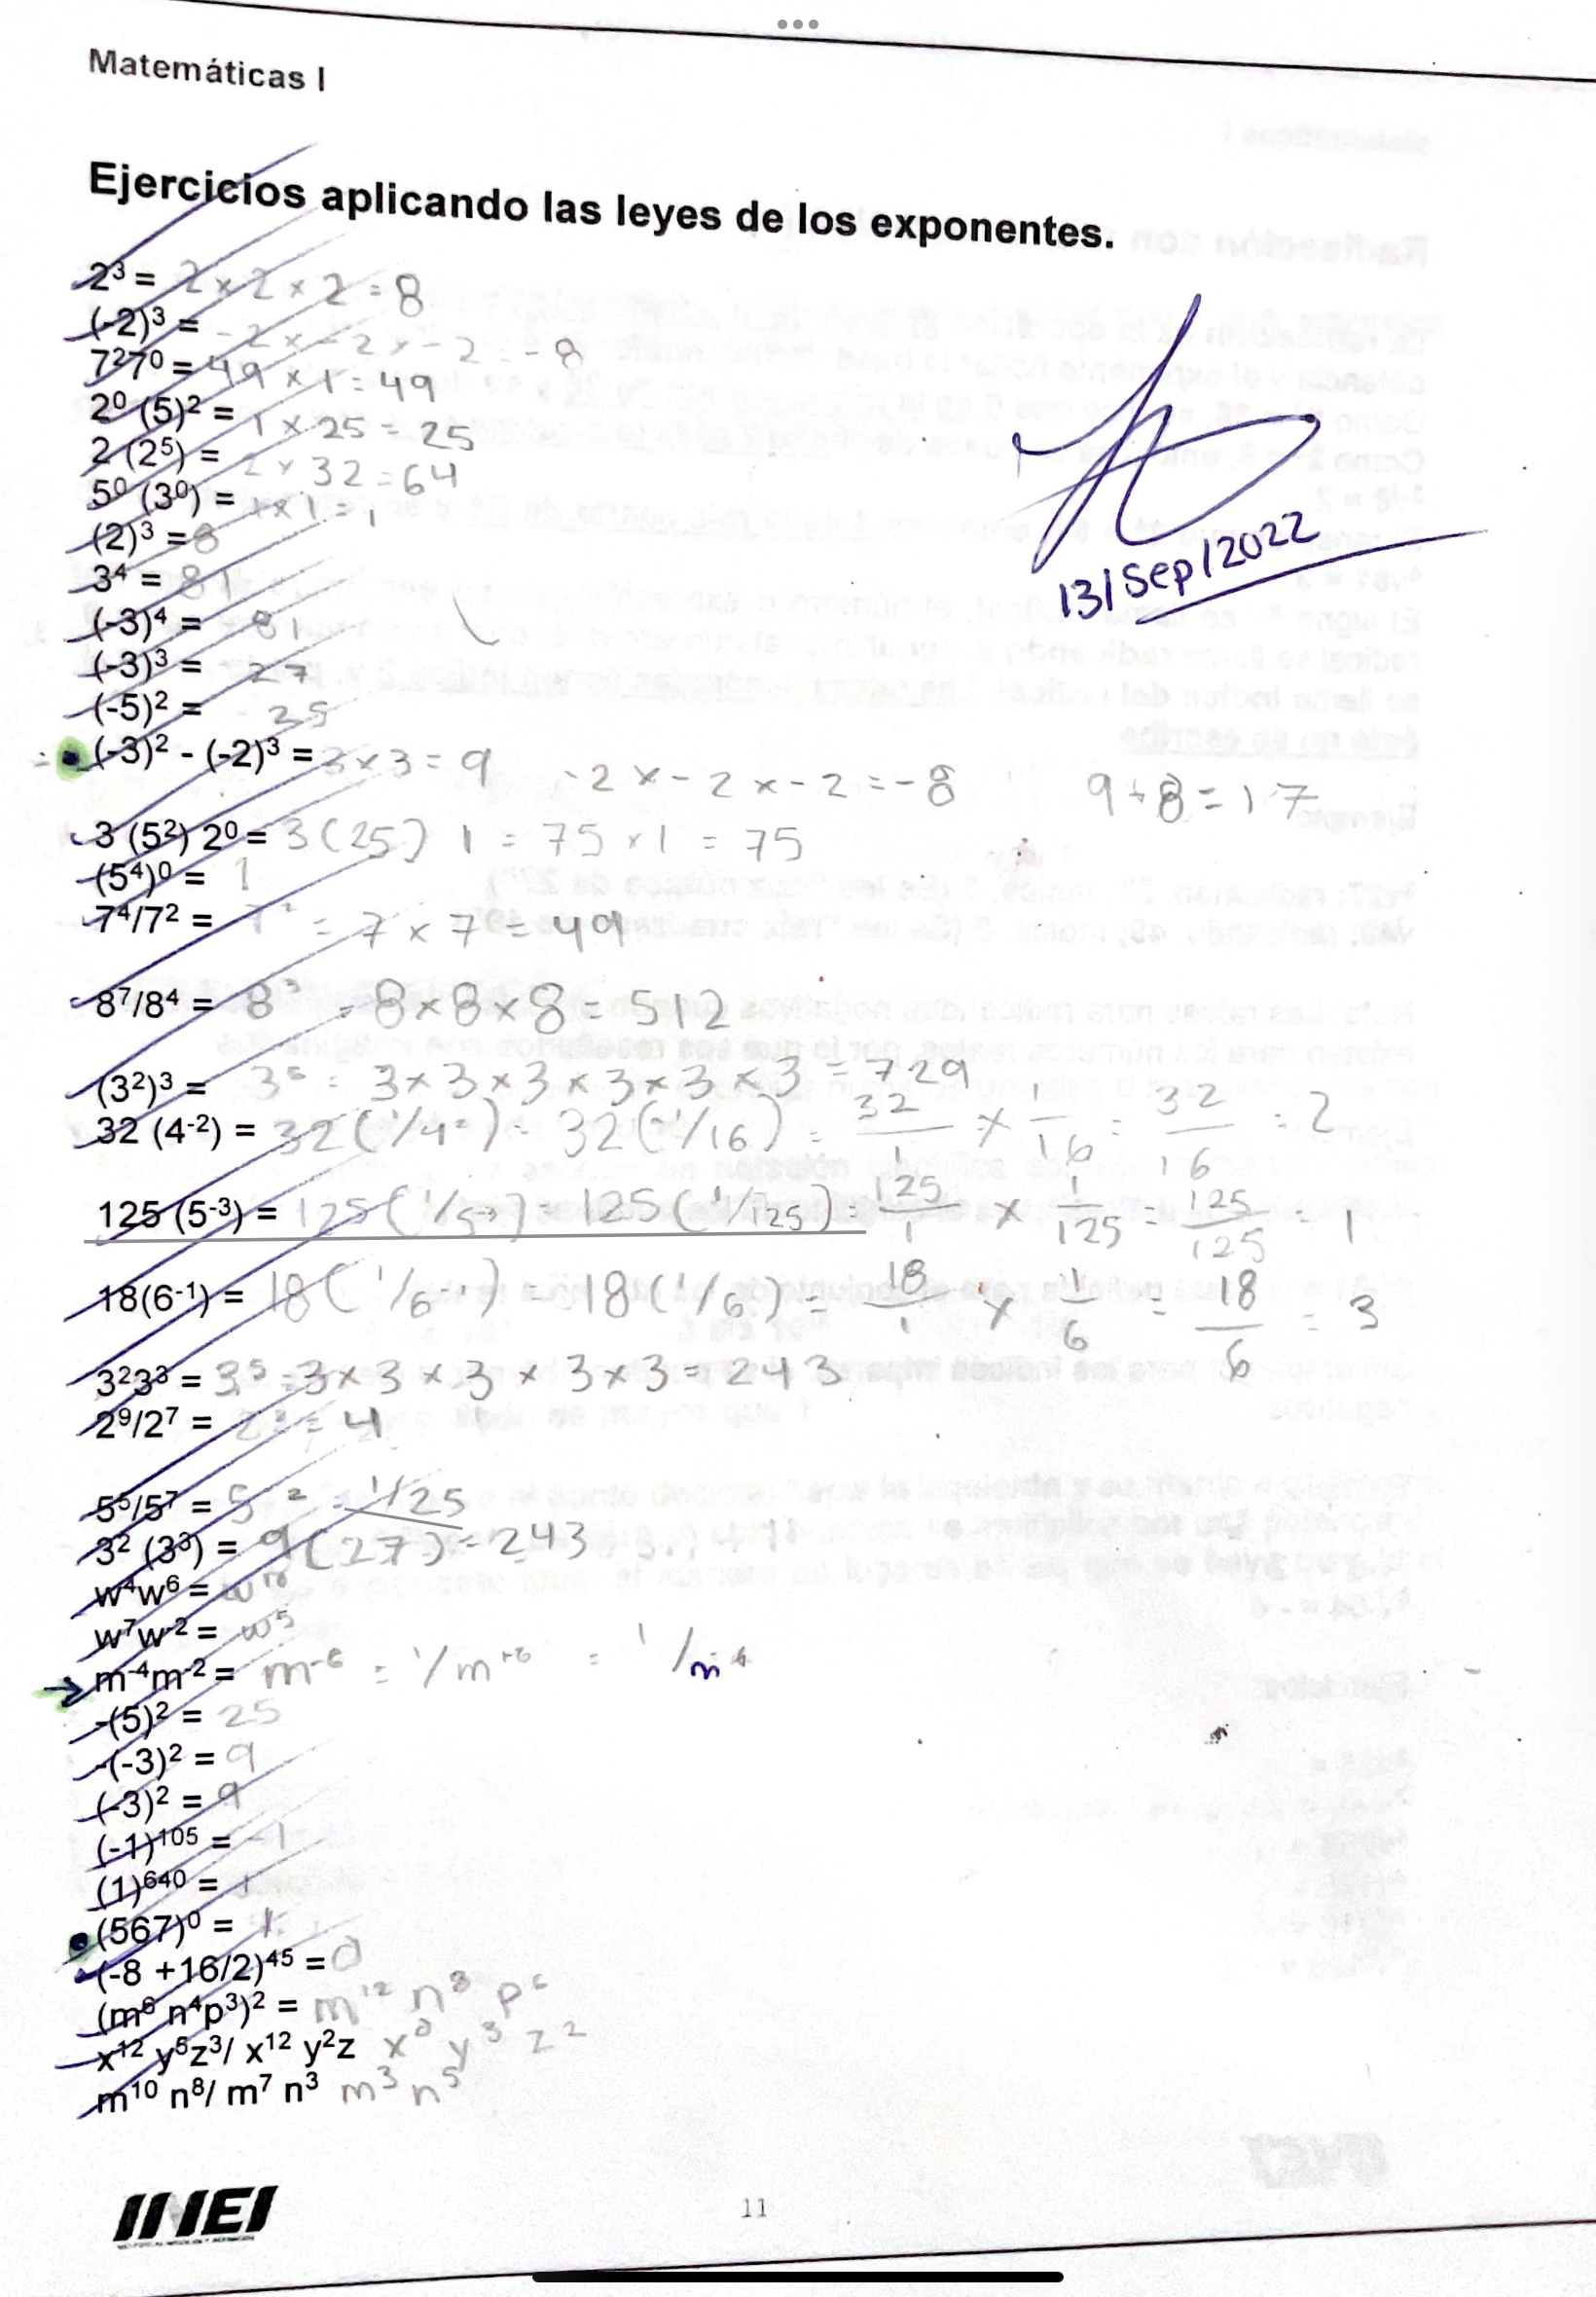 Matemáticas I
Ejercicios aplicando las leyes de los exponentes.
2³ = 2 x 2 x 2 = 8
(-2)³ = -2 x -2 x -2 = -8
7²7⁰ = 49 x 1 = 49
2⁰ (5)² = 1 x 25 = 25
2 (2⁵) = 2 x 32 = 64
5⁰ (3⁰) = 1 x 1 = 1
(2)³ = 8
3⁴ = 81
(-3)⁴ = 81
(-3)³ = 27
(-5)² = 25
13/Sep/2022
(-3)² - (-2)³ = 3 x 3 = 9 -2 x -2 x -2 = -8 9 + 8 = 17
3 (5²) 2⁰ = 3(25) 1 = 75 x 1 = 75
(5⁴)⁰ = 1
7⁴/7² = 7² = 7 x 7 = 49
8⁷/8⁴ = 8³ = 8 x 8 x 8 = 512
(3²)³ = 3⁶ = 3 x 3 x 3 x 3 x 3 x 3 = 729
32 (4⁻²) = 32(1/4²) = 32(1/16) = 32/1 x 1/16 = 32/16 = 2
125 (5⁻³) = 125(1/5³) = 125(1/125) = 125/1 x 1/125 = 125/125 = 1
18(6⁻¹) = 18(1/6⁻¹) = 18(1/6) = 18/1 x 1/6 = 18/6 = 3
3²3³ = 3⁵ = 3 x 3 x 3 x 3 x 3 = 243
2⁹/2⁷ = 2² = 4
5⁵/5⁷ = 5⁻² = 1/25
3² (3³) = 9(27) = 243
w⁴w⁶ = w¹⁰
w⁷w⁻² = w⁵
m⁻⁴m⁻² = m⁻⁶ = 1/m⁺⁶ = 1/m
-(5)² = 25
-(-3)² = 9
(-3)² = 9
(-1)¹⁰⁵ = -1
(1)⁶⁴⁰ = 1
(567)⁰ = 1
(-8 +16/2)⁴⁵ = 0
(m⁶ n⁴p³)² = m¹² n⁸ p⁶
x¹² y⁵z³/ x¹² y²z x⁰ y³ z²
m¹⁰ n⁸/ m⁷ n³ m³ n⁵
INEI
11